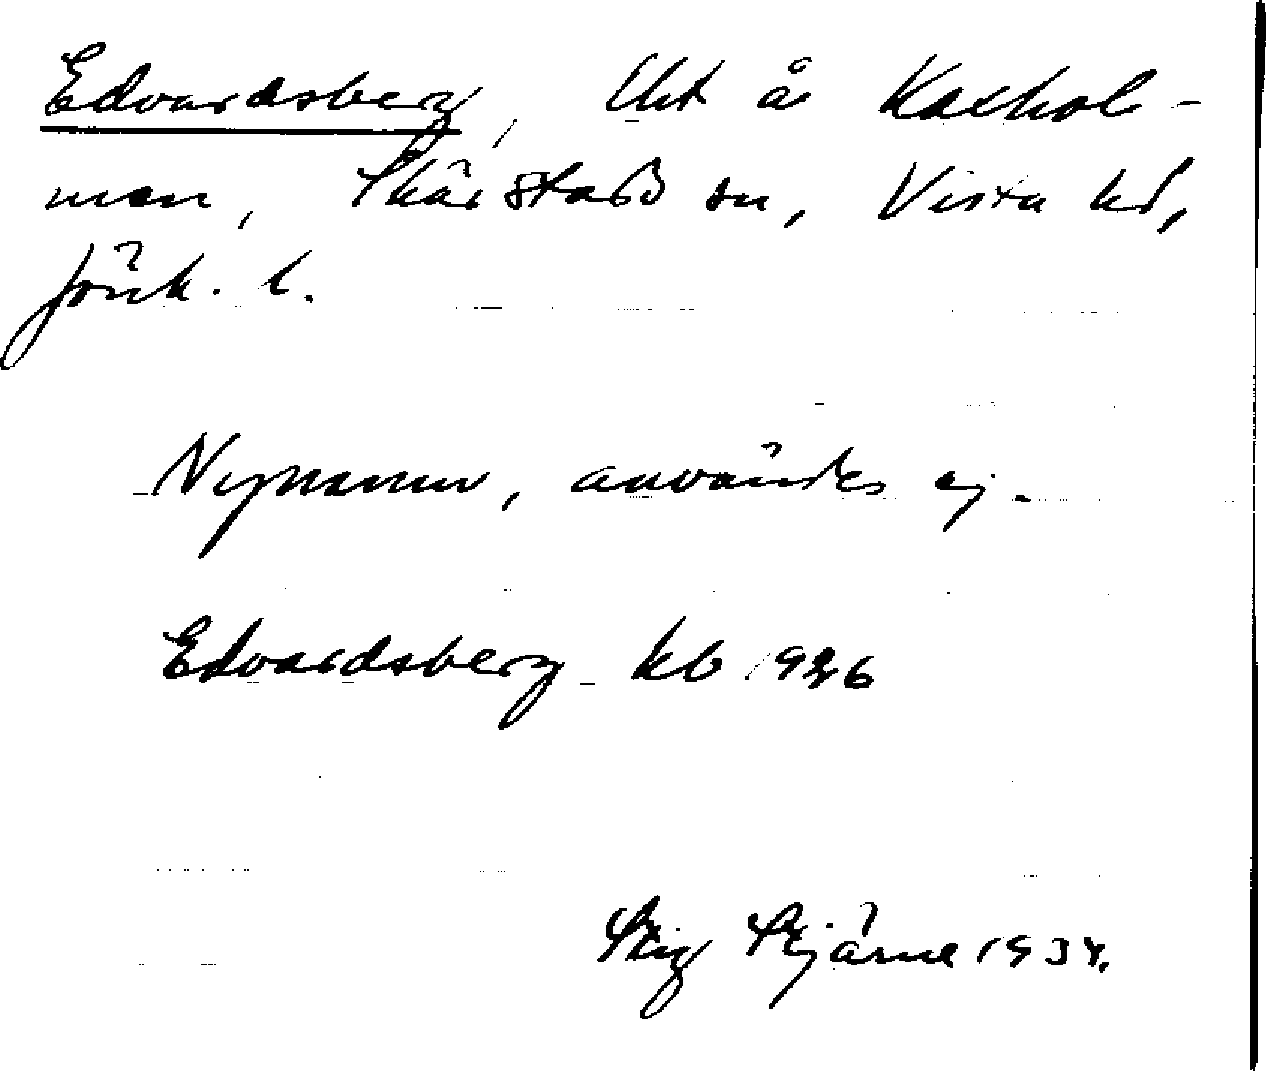 Edvardsberg, lht å Kaxhol-
men, Skärstads sn, Vista hd,
Jönk. l.
Nynamn, användes ej.
Edvardsberg kb 1926
Stig Stjärne 1934.